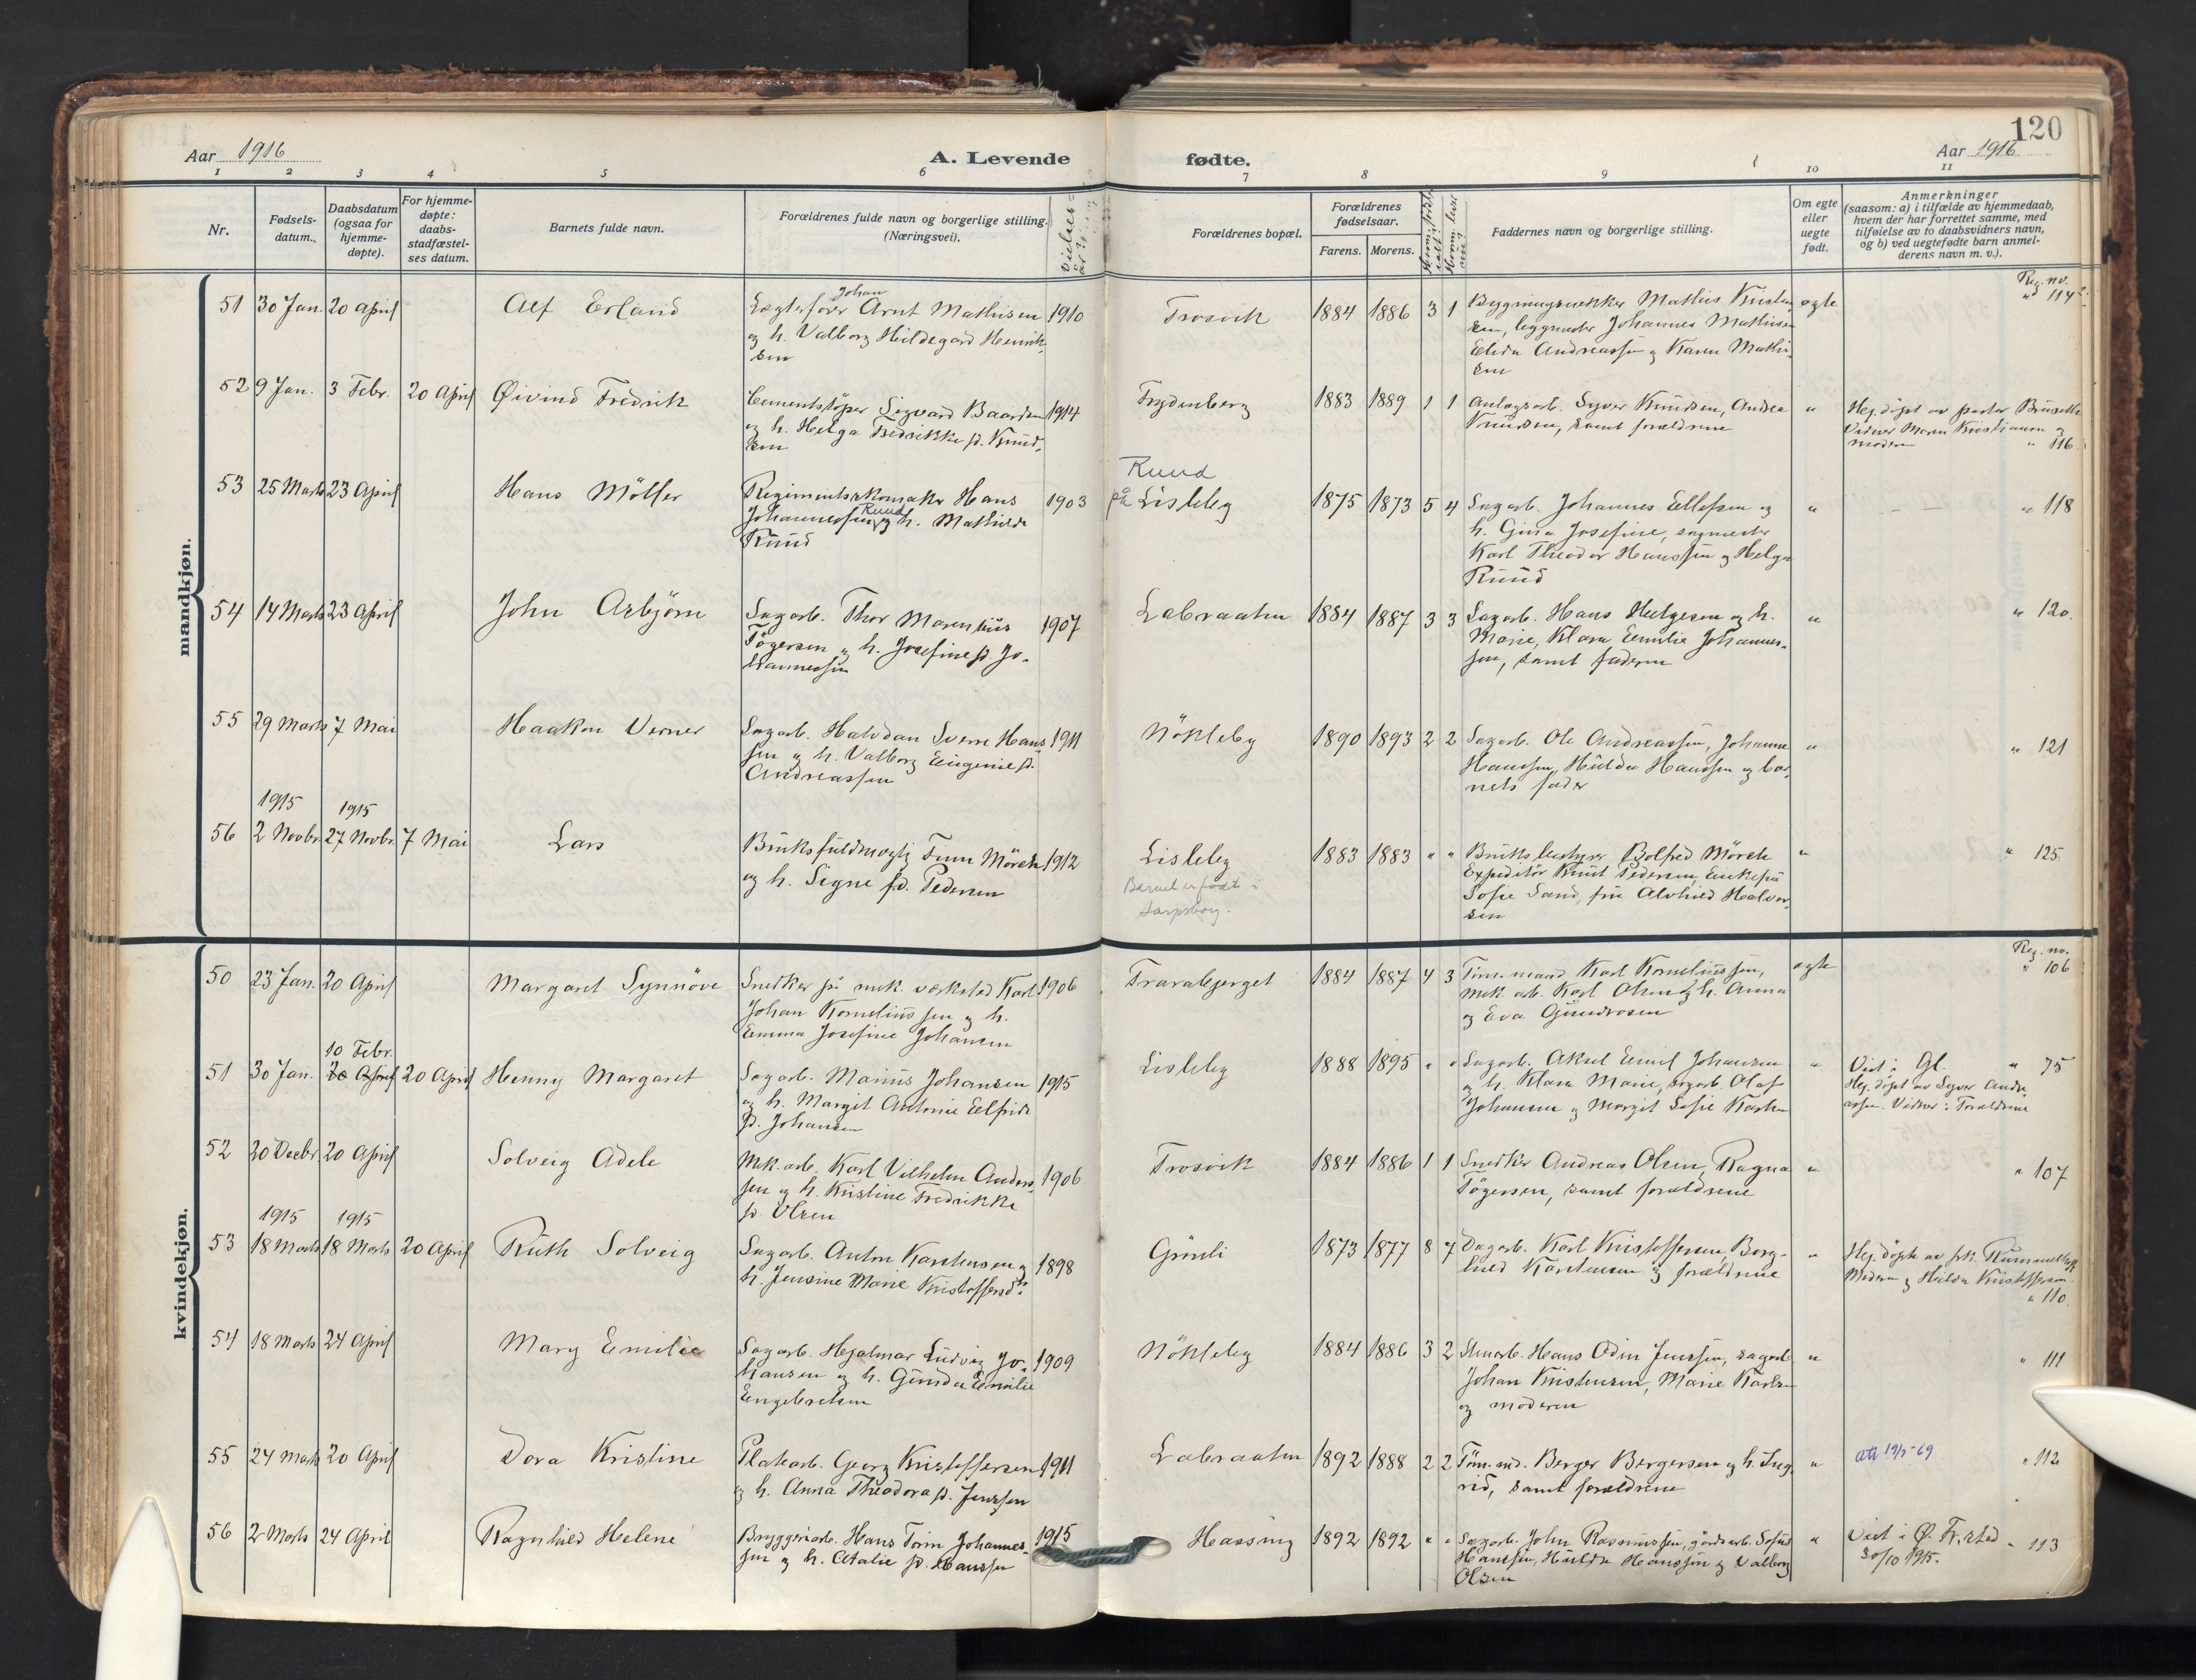 120
Aar 1916
A. Levende
fødte.
Aar 1916
1 2 3 4 5 6 7 8 9 10 11
Nr.
Fødsels-
datum.
Daabsdatum
(ogsaa for
hjemme-
døpte).
For hjemme-
døpte:
daabs-
stadfæstel-
ses datum.
Barnets fulde navn.
Forældrenes fulde navn og borgerlige stilling.
(Næringsvei).
Vielses-
Forældrenes bopæl.
Forældrenes
fødselsaar.
Farens. Morens.
Faddernes navn og borgerlige stilling.
Om egte
eller
uegte
født.
Anmerkninger
(saasom: a) i tilfælde av hjemmedaab,
hvem der har forrettet samme, med
tilføielse av to daabsvidners navn,
og b) ved uegtefødte barn anmel-
derens navn m. v.).
mandkjøn.
Reg. no.
51 30 Jan. 20 April Alf Erland
Johan
Lægterfører Arnt Mathisen 1910
og h. Valborg Hildegard Henrik-
sen
Trosvik 1884 1886 3 1
Bygningssnekker Mathis Kristen-
sen, byggmester Johannes Mathisen
Elida Andreassen og Karen Mathi-
sen
egte
" 114
52 9 Jan. 3 Febr. 20 April Øivind Fredrik
Cementstöper Sigvard Baardsen 1914
og h. Helga Fredrikke f. Knud-
sen
Frydenberg 1883 1889 1 1
Anlagsarb. Syver Knudsen, Andrea
Knudsen, samt forældrene
"
Hej. döpt av pastor Bruseth
Vidner Maren Kristiansen og
moderen " 116.
53 25 Marts 23 April Hans Möller
Regimentsskomaker Hans 1903
Johannessen Ruud og h. Mathilde
Ruud
Ruud
på Lisleby 1875 1873 5 4
Sagarb. Johannes Ellefsen og
h. Gina Josefine, sagmester
Karl Theodor Hanssen og Helga
Ruud
"
" 118
54 14 Marts 23 April John Asbjørn
Sagarb. Thor Marentius 1907
Tögersen og h. Josefine f. Jo-
hannessen
Labraaten 1884 1887 3 3
Sagarb. Hans Helgesen og h.
Marie, Klara Emilie Johannes-
sen, samt faderen
"
" 120.
55 29 Marts 7 Mai Haakon Verner
Sagarb. Halvdan Sverre Hans- 1911
sen og h. Valborg Eugenie f.
Andreassen
Nökleby 1890 1893 2 2
Sagarb. Ole Andreassen, Johanne
Hanssen, Hulda Hanssen og bar-
nets fader
"
" 121
1915 1915
56 2 Novbr. 27 Novbr. 7 Mai Lars
Bruksfuldmægtig Finn Mörch 1912
og h. Signe f. Pedersen
Lisleby
Barnet er født i
Sarpsborg.
1883 1883 " "
Bruksbestyrer Bolfred Mörch
Expeditör Knut Pedersen, Enkefru
Sofie Sand, frk. Alvhild Halvor-
sen
"
" 125.
kvindekjøn.
Reg. no.
50 23 Jan. 20 April Margaret Synnöve
Snedker på mek. værksted Karl 1906
Johan Korneliussen og h.
Emma Josefine Johansen
Trarabjerget 1884 1887 4 3
Töm.mand Karl Korneliussen,
mek. arb. Karl Olsen og h. Anna
og Eva Gundersen
egte
" 106
10 Febr.
51 30 Jan. 20 April 20 April Henny Margaret
Sagarb. Marius Johansen 1915
og h. Margit Antonie Elfride
f. Johansen
Lisleby 1888 1895 " "
Sagarb. Aksel Emil Johansen
og h. Klara Marie, sagarb. Olaf
Johansen og Margit Sofie Karlsen
"
Viet i Gl. " 75
Hej. döpt av Syver Andre-
assen. Vidner: Forældrene
52 20 Decbr. 20 April Solveig Adele
Mek. arb. Karl Vilhelm Anders- 1906
sen og h. Kristine Fredrikke
f. Olsen
Trosvik 1884 1886 1 1
Snedker Andreas Olsen, Ragna
Tögersen, samt forældrene
"
" 107
1915 1915
53 18 Marts 18 Marts 20 April Ruth Solveig
Sagarb. Anton Karstensen og 1898
h. Jensine Marie Kristoffersdr.
Grönli 1873 1877 8 7
Dagarb. Karl Kristoffersen, Borg-
hild Karstensen og forældrene
"
Hej. döpt av frk. Hummelhoff
Moderen og Hulda Kristoffersen.
" 110.
54 18 Marts 24 April Mary Emilie
Sagarb. Hjalmar Ludvig Jo- 1909
hansen og h. Gunda Emilie
Engebretsen
Nökleby 1884 1886 3 2
Stenarb. Hans Odin Jenssen, sagarb
Johan Kristensen, Marie Karlsen
og moderen
"
" 111
55 24 Marts 20 April Dora Kristine
Platearb. Georg Kristoffersen 1911
og h. Anna Theodora f. Jenssen
Labraaten 1892 1888 2 2
Töm.md. Berger Bergersen og h. Ing-
rid, samt forældrene
"
att 19/5-69 " 112
56 2 Marts 24 April Ragnhild Helene
Bryggeriarb. Hans Torin Johannes- 1915
sen og h. Atalie f. Hanssen
Hassing 1892 1892 " "
Sagarb. John Rasmussen, gårdsarb. Sofus
Hanssen, Hulda Hanssen og Valborg
Olsen
"
Viet i Ø. Fr.stad " 113
30/10 1915.